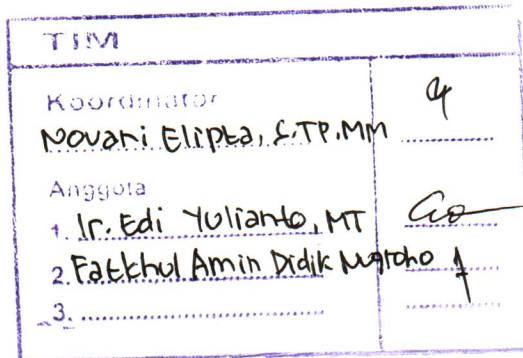 TIM
Koordinator
Novari Elipta, S.TP.MM
Anggota
1. Ir. Edi Yulianto, MT
2. Fatkhul Amin Didik Nugroho
3.